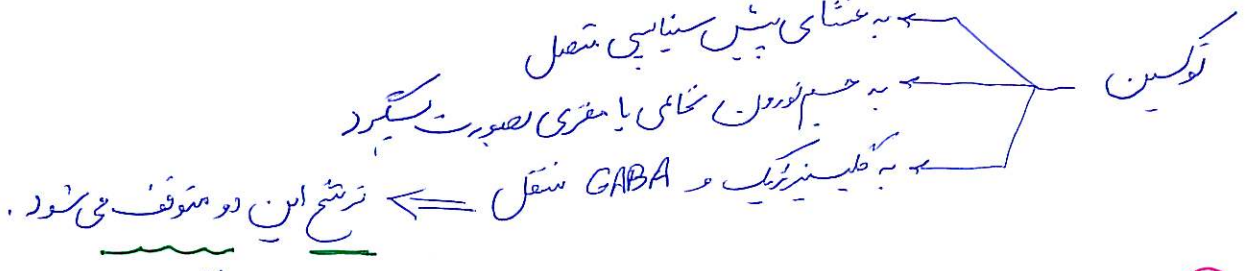 به غشای پیش سیناپسی متصل
توکسین
به جسم نورون نخاعی یا مغزی بصورت پسگرد
به گلیسینرژیک و GABA منتقل ⇐ ترشح این دو متوقف می شود.